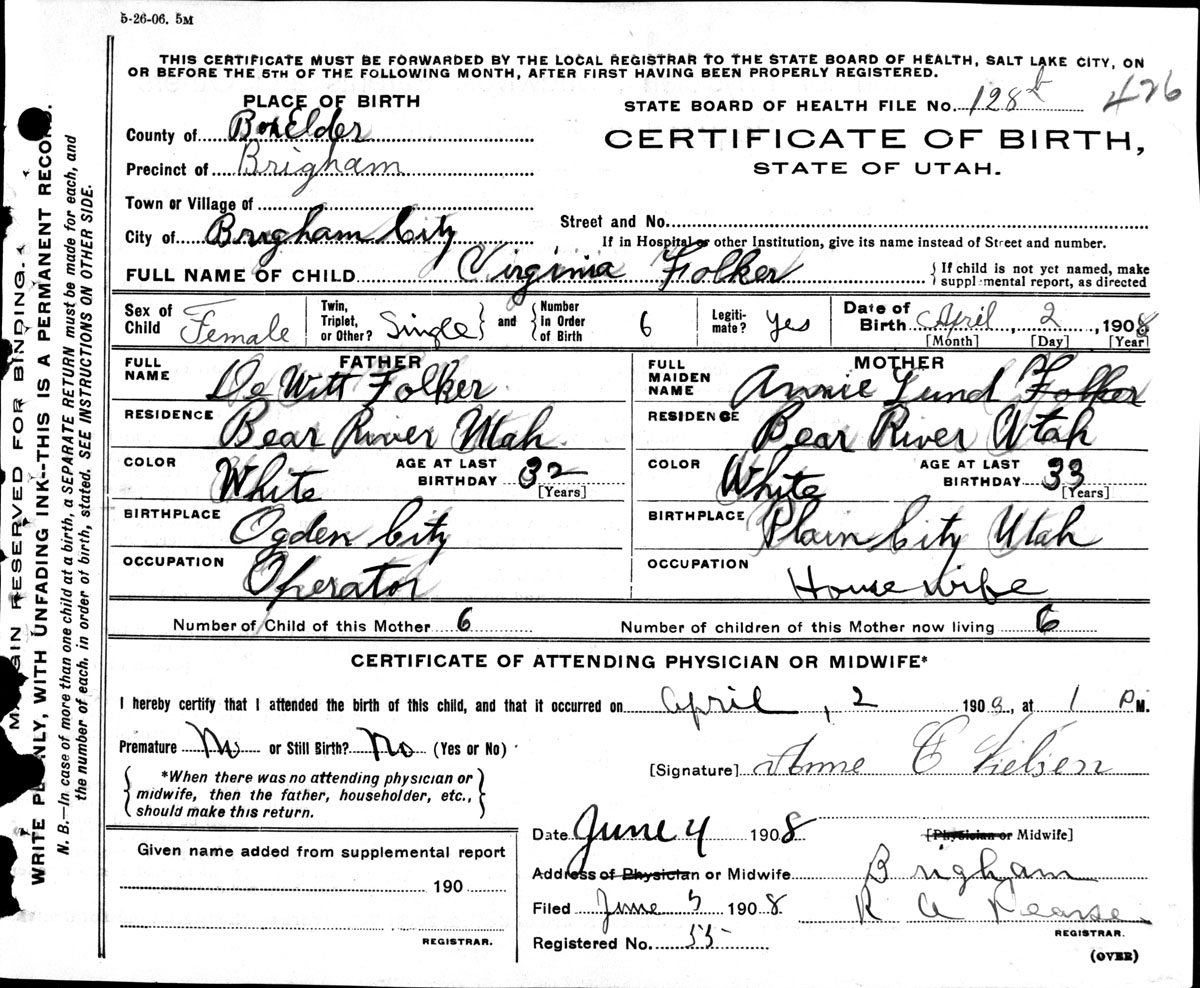 5-26-06. 5M
THIS CERTIFICATE MUST BE FORWARDED BY THE LOCAL REGISTRAR TO THE STATE BOARD OF HEALTH, SALT LAKE CITY, ON
OR BEFORE THE 5TH OF THE FOLLOWING MONTH, AFTER FIRST HAVING BEEN PROPERLY REGISTERED.
PLACE OF BIRTH
County of Box Elder
Precinct of Brigham
Town or Village of
City of Brigham City
STATE BOARD OF HEALTH FILE No. 128 426
CERTIFICATE OF BIRTH,
STATE OF UTAH.
Street and No.
If in Hospital or other Institution, give its name instead of Street and number.
FULL NAME OF CHILD Virginia Folker { If child is not yet named, make
supplemental report, as directed
Sex of Child Female
Twin, Triplet, or Other? Single } and { Number in Order of Birth 6
Legiti-mate? Yes
Date of Birth April, 2, 1908
[Month] [Day] [Year]
FATHER
FULL NAME De Witt Folker
RESIDENCE Bear River Utah
COLOR White AGE AT LAST BIRTHDAY 32 [Years]
BIRTHPLACE Ogden City
OCCUPATION Operator
MOTHER
FULL MAIDEN NAME Annie Lund Folker
RESIDENCE Bear River Utah
COLOR White AGE AT LAST BIRTHDAY 33 [Years]
BIRTHPLACE Plain City Utah
OCCUPATION House wife
Number of Child of this Mother 6 Number of children of this Mother now living 6
CERTIFICATE OF ATTENDING PHYSICIAN OR MIDWIFE*
I hereby certify that I attended the birth of this child, and that it occurred on April, 2 1908, at 1 P M.
Premature No or Still Birth? No (Yes or No)
*When there was no attending physician or
midwife, then the father, householder, etc.,
should make this return.
[Signature] Anne C Nielsen
Date June 4 1908 [Physician or Midwife]
Address of Physician or Midwife Brigham
Filed June 5 1908 R A Pearse
REGISTRAR.
Registered No. 55
(OVER)
Given name added from supplemental report
190
REGISTRAR.
MARGIN RESERVED FOR BINDING.
WRITE PLAINLY, WITH UNFADING INK--THIS IS A PERMANENT RECORD.
N. B.—In case of more than one child at a birth, a SEPARATE RETURN must be made for each, and
the number of each, in order of birth, stated. SEE INSTRUCTIONS ON OTHER SIDE.